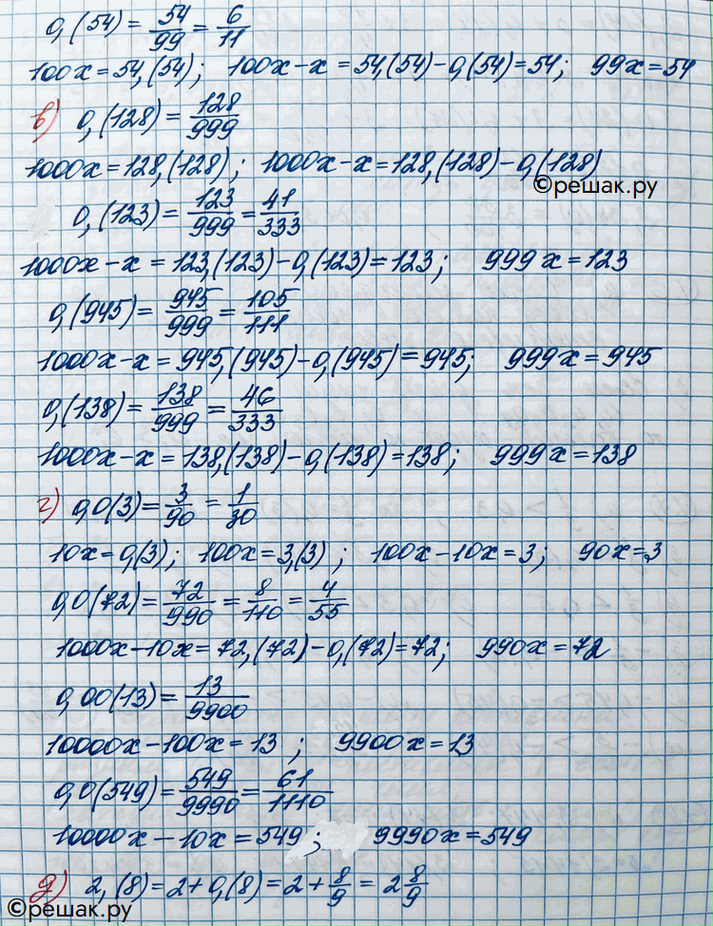 0,(54) = 54/99 = 6/11
100x = 54,(54); 100x - x = 54,(54) - 0,(54) = 54; 99x = 54
в) 0,(128) = 128/999
1000x = 128,(128); 1000x - x = 128,(128) - 0,(128)
©решак.ру
0,(123) = 123/999 = 41/333
1000x - x = 123,(123) - 0,(123) = 123; 999x = 123
0,(945) = 945/999 = 105/111
1000x - x = 945,(945) - 0,(945) = 945; 999x = 945
0,(138) = 138/999 = 46/333
1000x - x = 138,(138) - 0,(138) = 138; 999x = 138
г) 0,0(3) = 3/90 = 1/30
10x = 0,(3); 100x = 3,(3); 100x - 10x = 3; 90x = 3
0,0(72) = 72/990 = 8/110 = 4/55
1000x - 10x = 72,(72) - 0,(72) = 72; 990x = 72
0,00(13) = 13/9900
10000x - 100x = 13; 9900x = 13
0,0(549) = 549/9990 = 61/1110
10000x - 10x = 549; 9990x = 549
д) 2,(8) = 2 + 0,(8) = 2 + 8/9 = 2 8/9
©решак.ру